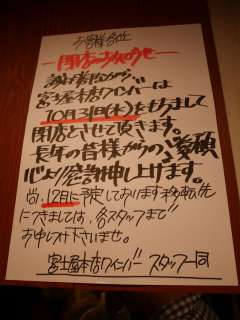 お客様各位
閉店お知らせ
誠に勝手ながら
富士屋本店ワインバーは
10月31日(木)をもちまして
閉店とさせて頂きます。
長年の皆様からのご愛顧
心より感謝申し上げます。
尚、12月に予定しております移転先
につきましては、各スタッフまで
お申しつけ下さいませ。
富士屋本店ワインバー スタッフ一同